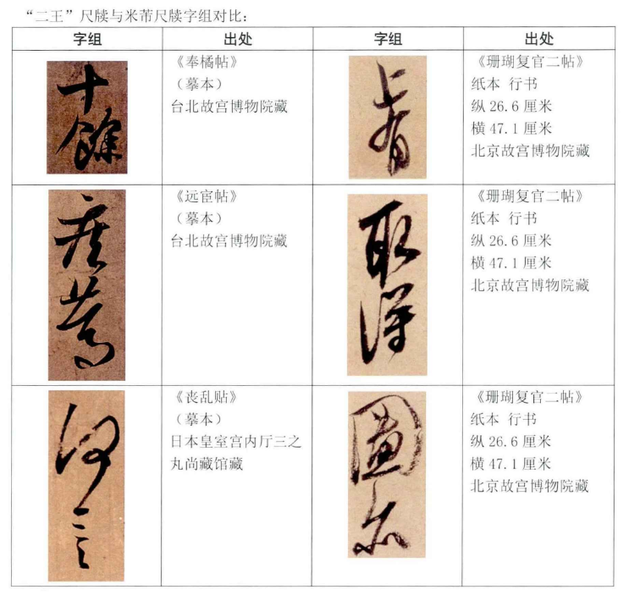 “二王”尺牍与米芾尺牍字组对比：
字组
出处
字组
出处
十餘
《奉橘帖》
（摹本）
台北故宫博物院藏
上有
《珊瑚复官二帖》
纸本 行书
纵 26.6 厘米
横 47.1 厘米
北京故宫博物院藏
疾篤
《远宦帖》
（摹本）
台北故宫博物院藏
取得
《珊瑚复官二帖》
纸本 行书
纵 26.6 厘米
横 47.1 厘米
北京故宫博物院藏
何言
《丧乱贴》
（摹本）
日本皇室宫内厅三之
丸尚藏馆藏
圖亦
《珊瑚复官二帖》
纸本 行书
纵 26.6 厘米
横 47.1 厘米
北京故宫博物院藏